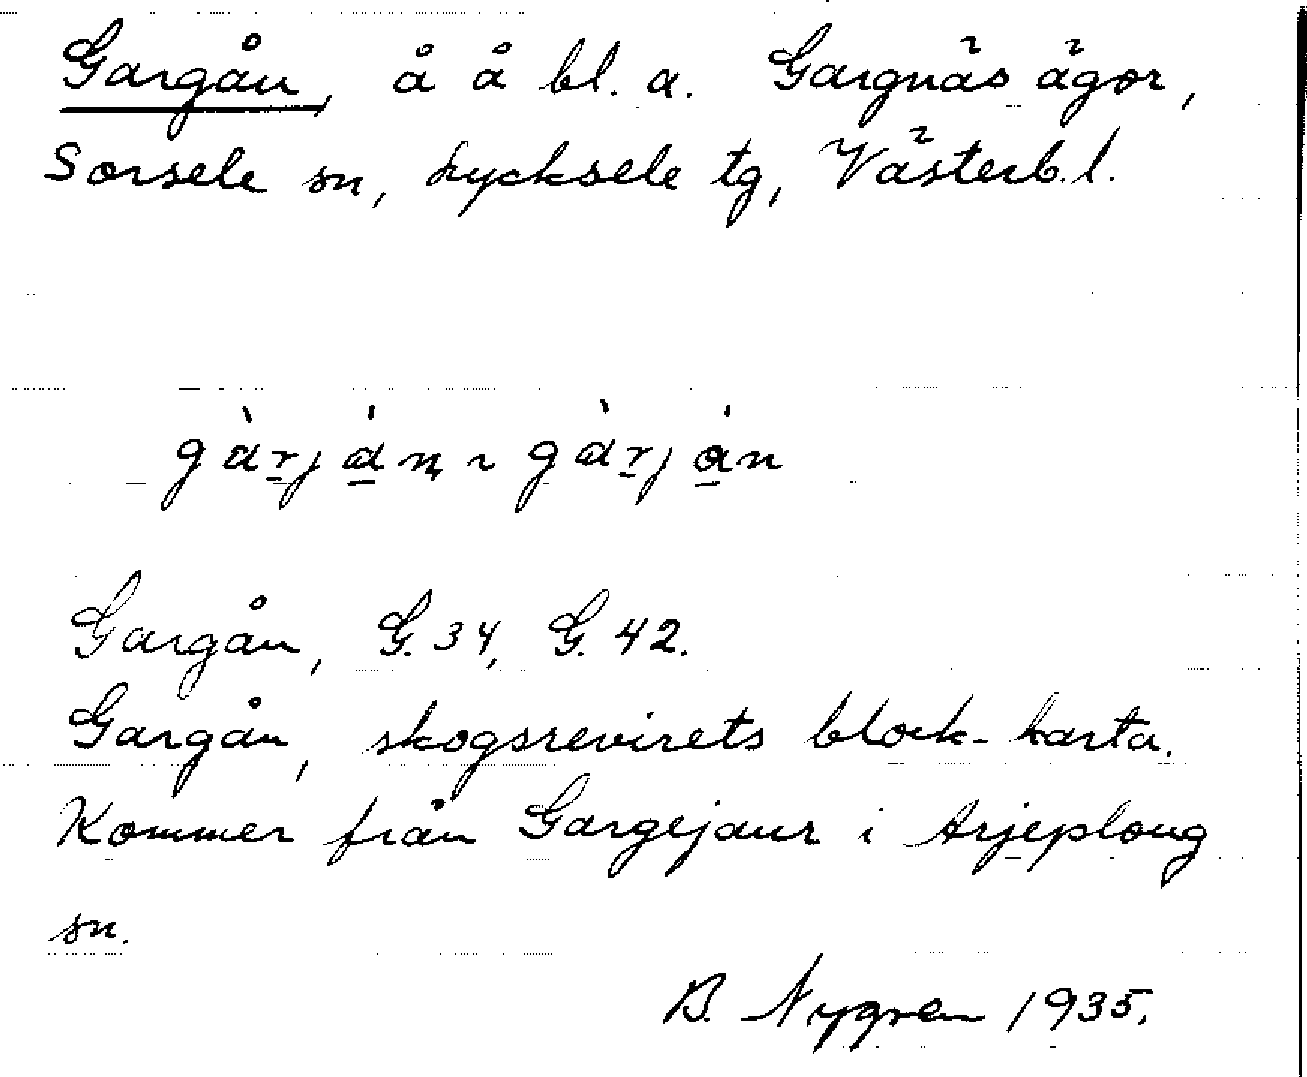 Gargån, å å bl. a. Gargnäs ägor,
Sorsele sn, Lycksele tg, Västerb.l.
gàr̲já̲n ~ gàr̲já̲n
Gargån, G. 34, G. 42.
Gargån, skogsrevirets block-karta.
Kommer från Gargejaur i Arjeploug
sn.
B. Nygren 1935.